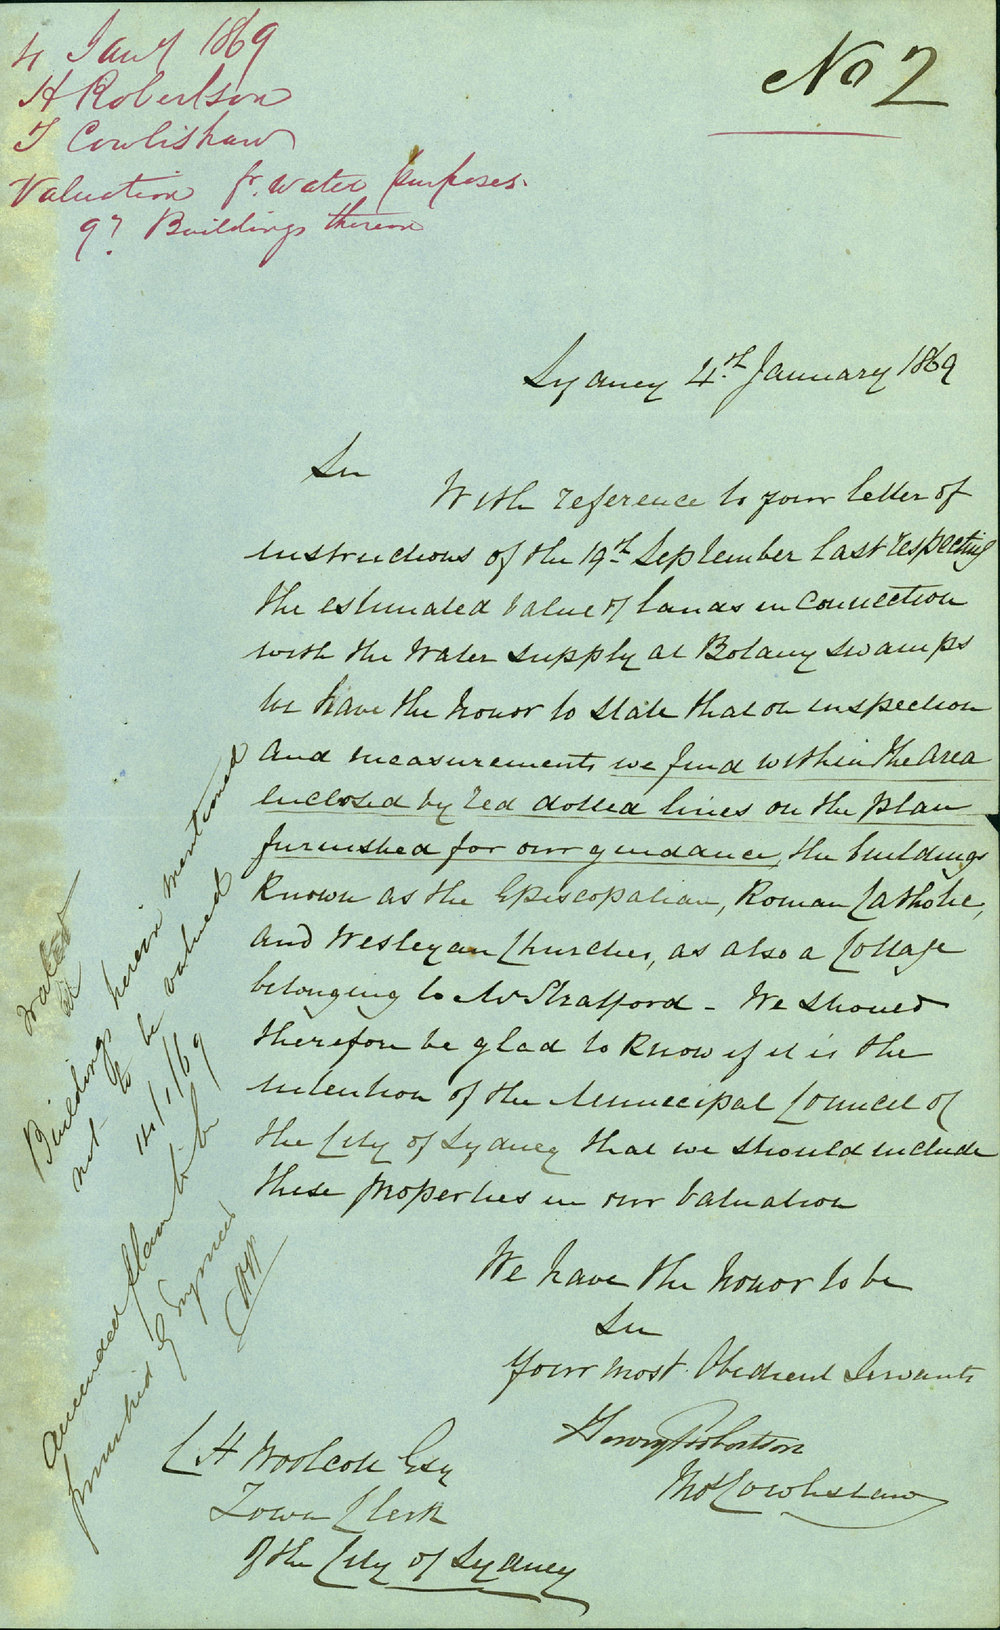 4 Jany 1869
H Robertson
T Cowlishaw
Valuation fr. water purposes.
9? Buildings thereon
No 2
Sydney 4th January 1869
Sir
With reference to your letter of
instructions of the 19th September last respecting
the estimated value of lands in connection
with the Water supply at Botany Swamps
we have the honor to state that on inspection
and measurements we find within the area
enclosed by red dotted lines on the plan
furnished for our guidance, the buildings
known as the Episcopalian, Roman Catholic,
and Wesleyan Churches, as also a Cottage
belonging to Mr Stratford - We should
therefore be glad to know if it is the
intention of the Municipal Council of
the City of Sydney that we should include
these properties in our Valuation
We have the honor to be
Sir
Your most Obedient Servants
Henry Robertson
Thos Cowlishaw
C H Woolcott Esq
Town Clerk
of the City of Sydney
Water
Buildings herein mentioned
not to be valued
14/1/69
Amended plan to be
furnished by Engineer
CHW